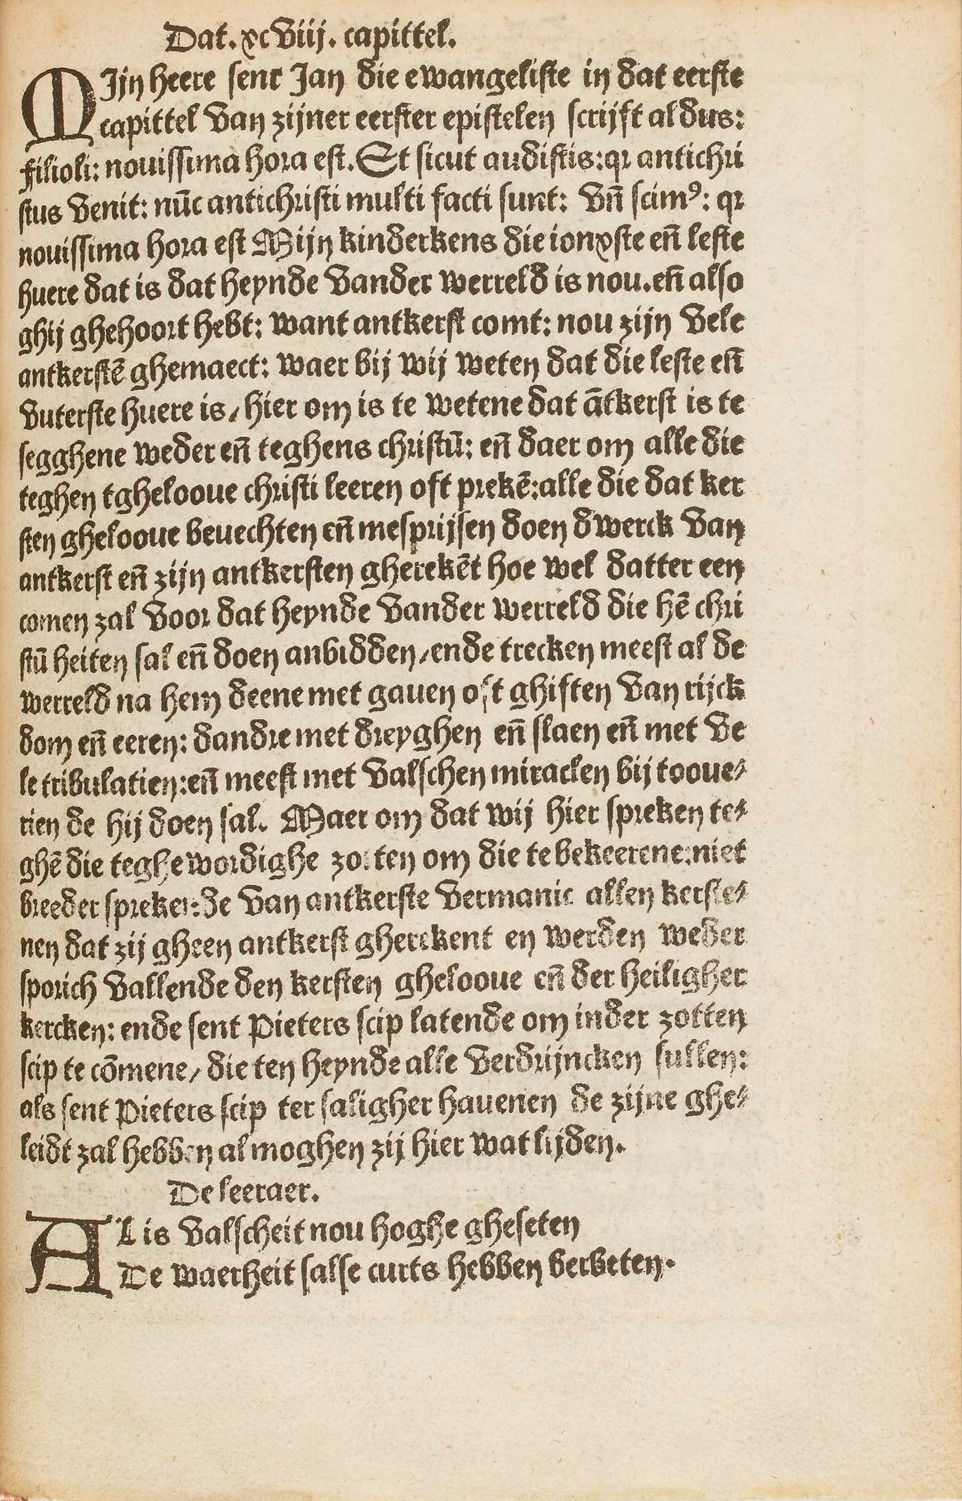 Dat.xcviij. capittel.
MIjn heere sent Jan die ewangeliste in dat eerste
capittel van zijner eerster epistelen scrijft aldus:
filioli: nouissima hora est. Et sicut audistis: qꝛ antichri
stus venit: nūc antichristi multi facti sunt: vn̄ scimꝰ: qꝛ
nouissima hora est Mijn kinderkens die ionxste en̄ leste
huere dat is dat heynde vander werreld is nou. en̄ also
ghij ghehoort hebt: want antkerst comt: nou zijn vele
antkerstē ghemaect: waer bij wij weten dat die leste en̄
vuterste huere is / hier om is te wetene dat ātkerst is te
segghene weder en̄ teghens christū: en̄ daer om alle die
teghen tghelooue christi leeren oft prekē: alle die dat ker
sten ghelooue beuechten en̄ mesprijsen doen dwerck van
antkerst en̄ zijn antkersten gherekēt hoe wel datter een
comen zal voor dat heynde vander werreld die hē chri
stū heiten sal en̄ doen anbidden / ende trecken meest al de
werreld na hem deene met gauen oft ghiften van rijck
dom en̄ eeren: dandre met dreyghen en̄ slaen en̄ met ve
le tribulatien: en̄ meest met valschen miraclen bij tooue⸗
rien de hij doen sal. Maer om dat wij hier spreken te⸗
ghē die teghewordighe zotten om die te bekeerene: niet
breeder sprekende van antkerste vermanic allen kerste⸗
nen dat zij gheen antkerst gherekent en werden weder
sporich vallende den kersten ghelooue en̄ der heiligher
kercken: ende sent Pieters scip latende om inder zotten
scip te cōmene / die ten heynde alle verdrijncken sullen:
als sent Pieters scip ter saligher hauenen de zijne ghe⸗
leidt zal hebben al moghen zij hier wat lijden.
De leeraer.
AL is valscheit nou hoghe gheseten
De waerheit salse curts hebben verbeten.